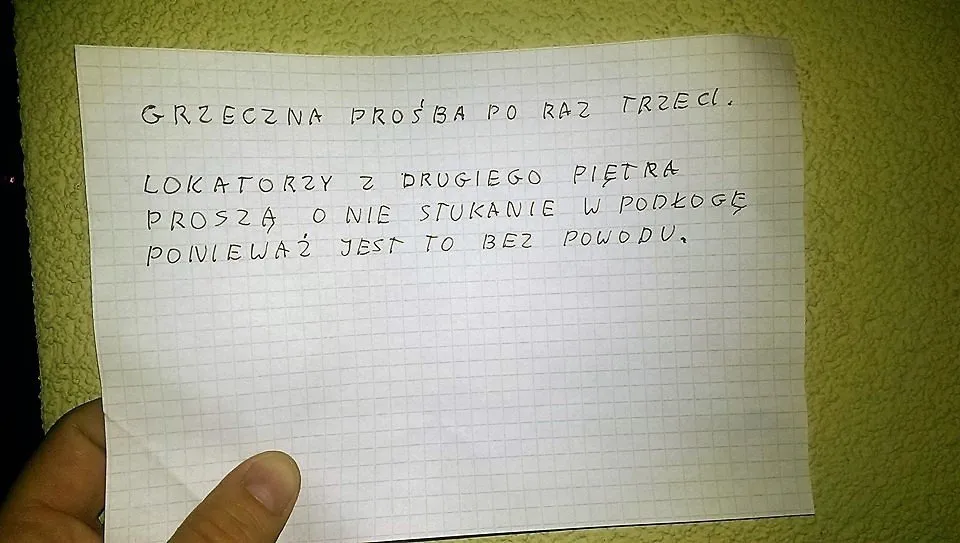 GRZECZNA PROŚBA PO RAZ TRZECI.
LOKATORZY Z DRUGIEGO PIĘTRA
PROSZĄ O NIE STUKANIE W PODŁOGĘ
PONIEWAŹ JEST TO BEZ POWODU.